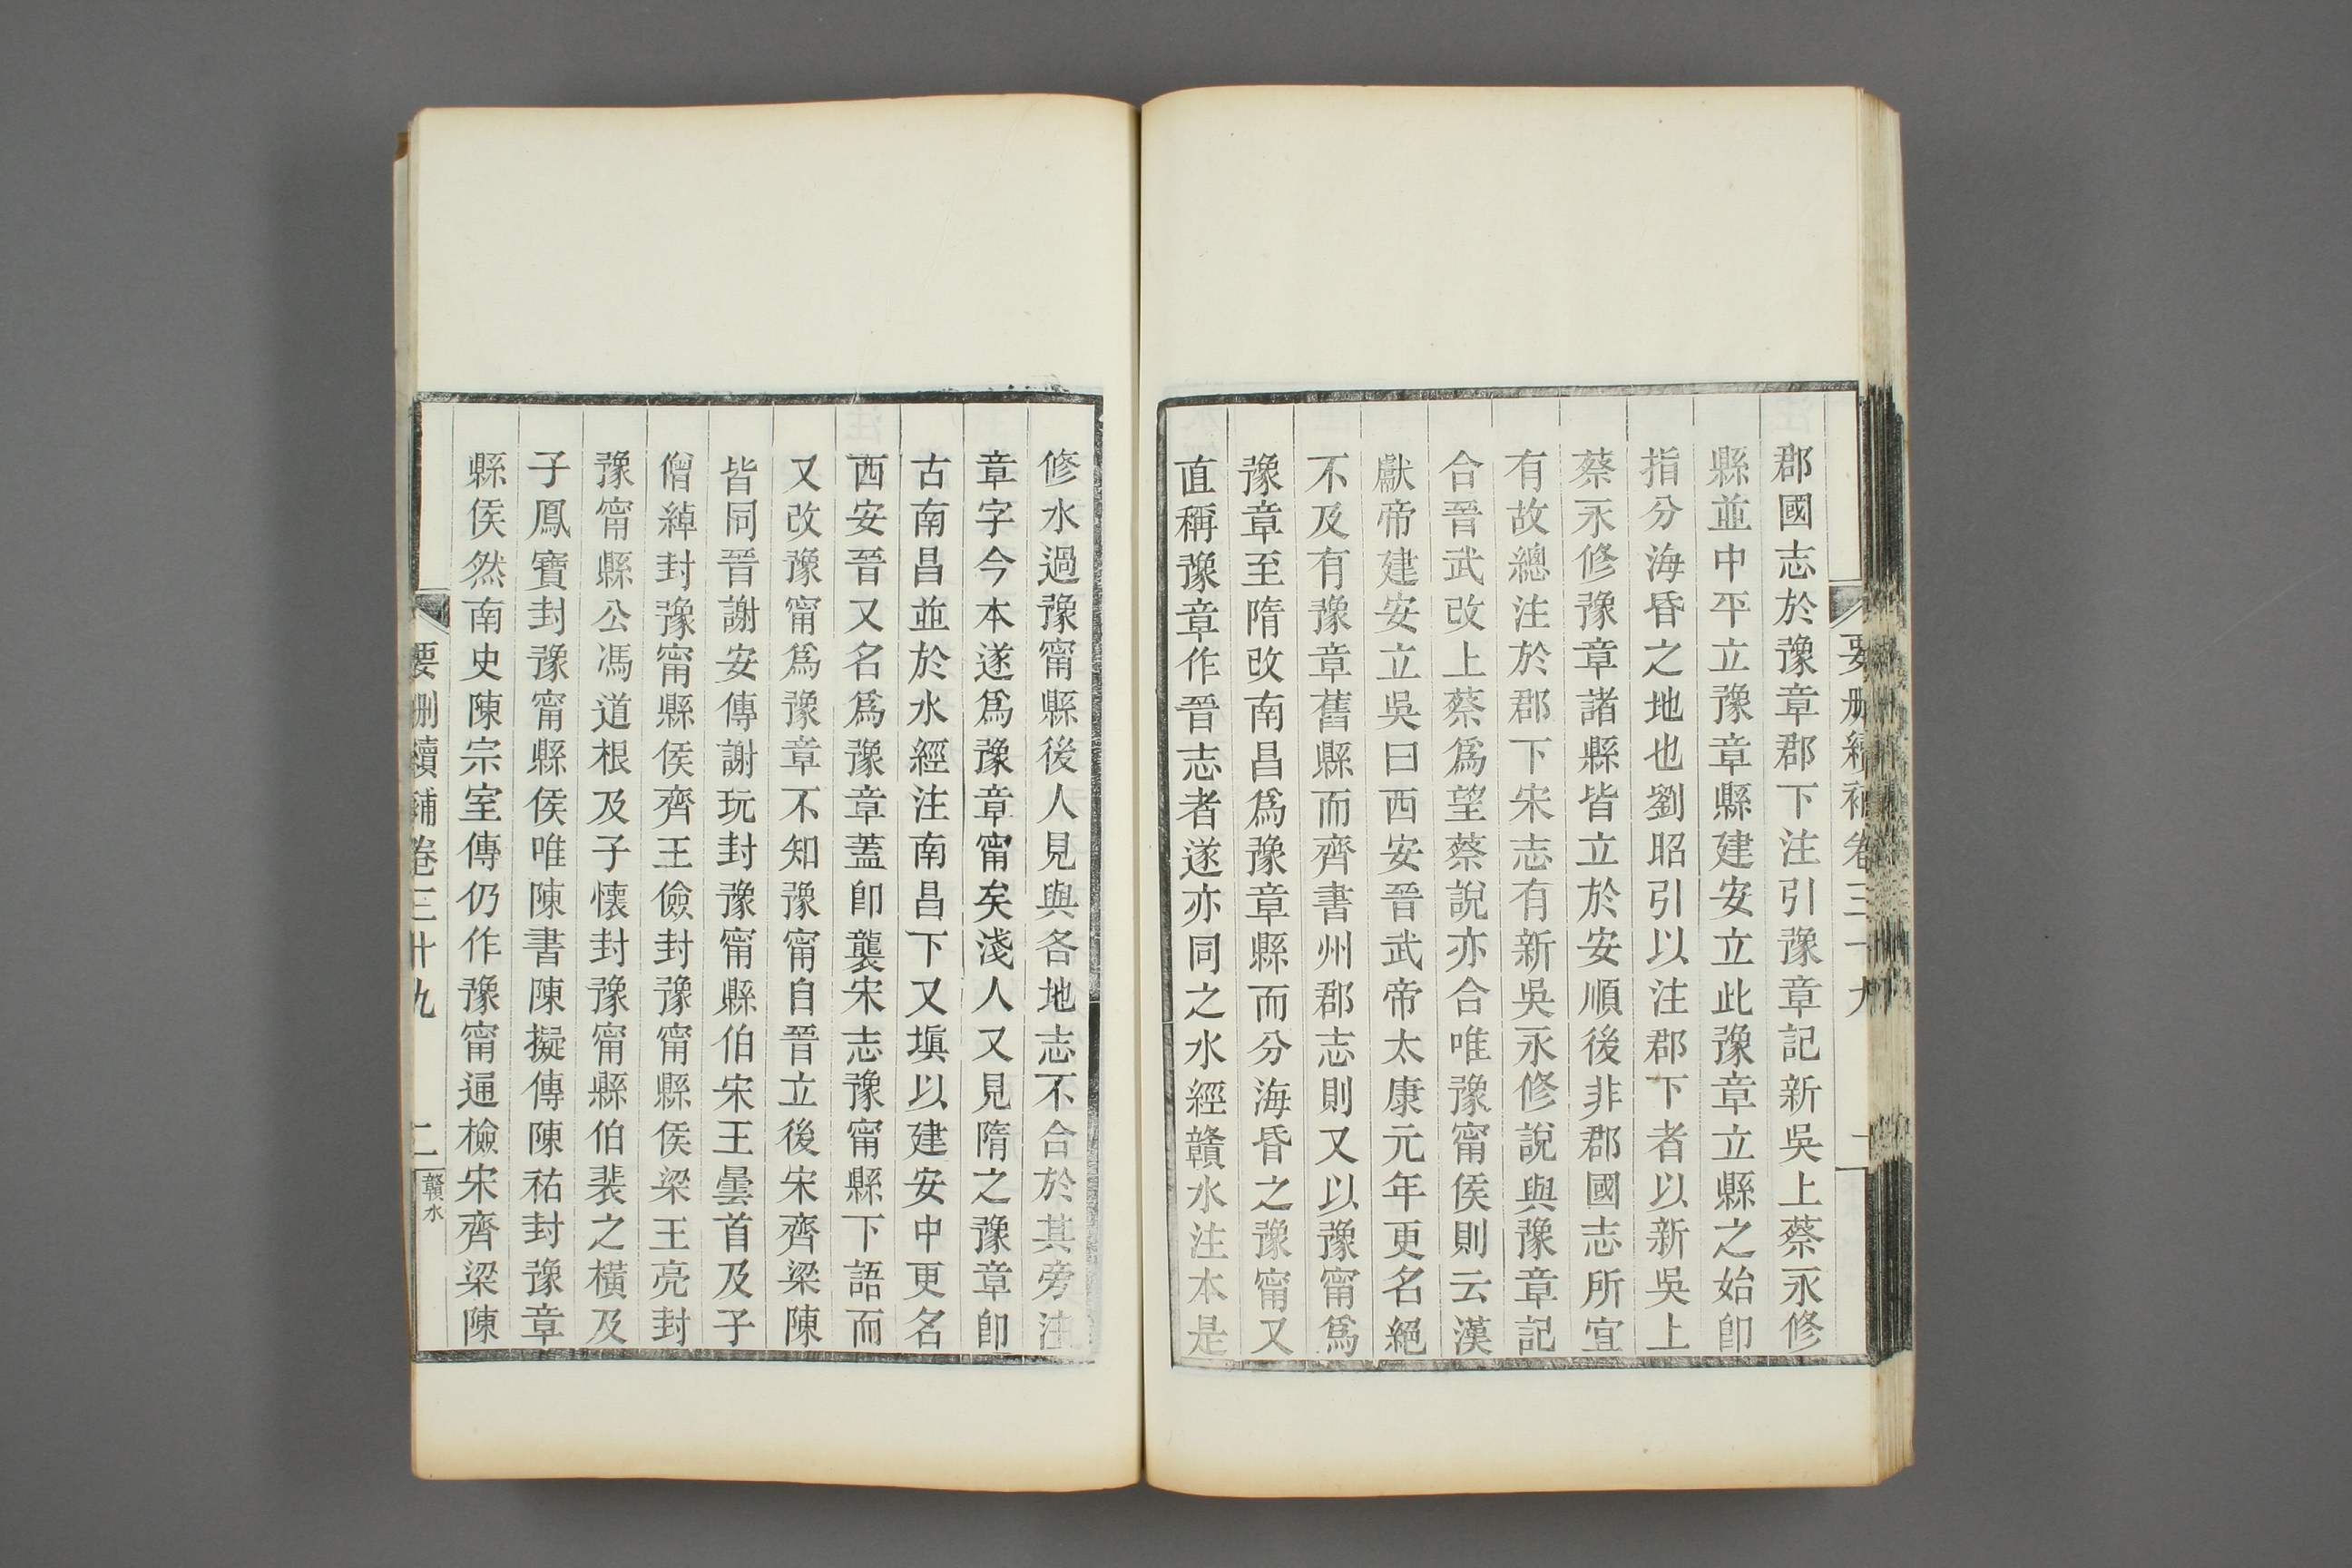 要刪續補卷三十九
郡國志於豫章郡下注引豫章記新吳上蔡永修
縣並中平立豫章縣建安立此豫章立縣之始卽
指分海昏之地也劉昭引以注郡下者以新吳上
蔡永修豫章諸縣皆立於安順後非郡國志所宜
有故總注於郡下宋志有新吳永修說與豫章記
合晉武改上蔡爲望蔡說亦合唯豫甯侯則云漢
獻帝建安立吳曰西安晉武帝太康元年更名絕
不及有豫章舊縣而齊書州郡志則又以豫甯爲
豫章至隋改南昌爲豫章縣而分海昏之豫甯又
直稱豫章作晉志者遂亦同之水經贛水注本是
修水過豫甯縣後人見與各地志不合於其旁注
章字今本遂爲豫章甯矣淺人又見隋之豫章卽
古南昌並於水經注南昌下又塡以建安中更名
西安晉又名爲豫章蓋卽襲宋志豫甯縣下語而
又改豫甯爲豫章不知豫甯自晉立後宋齊梁陳
皆同晉謝安傳謝玩封豫甯縣伯宋王曇首及子
僧綽封豫甯縣侯齊王儉封豫甯縣侯梁王亮封
豫甯縣公馮道根及子懷封豫甯縣伯裴之橫及
子鳳寶封豫甯縣侯唯陳書陳擬傳陳祐封豫章
縣侯然南史陳宗室傳仍作豫甯通檢宋齊梁陳
要刪續補卷三十九 二 贛水